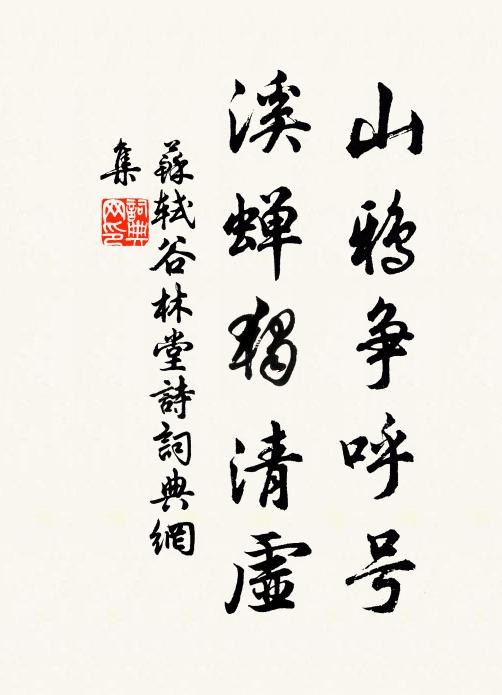 山鴉争呼号
溪蝉獨清虛
蘇軾谷林堂詩詞典網
集
詞典網印